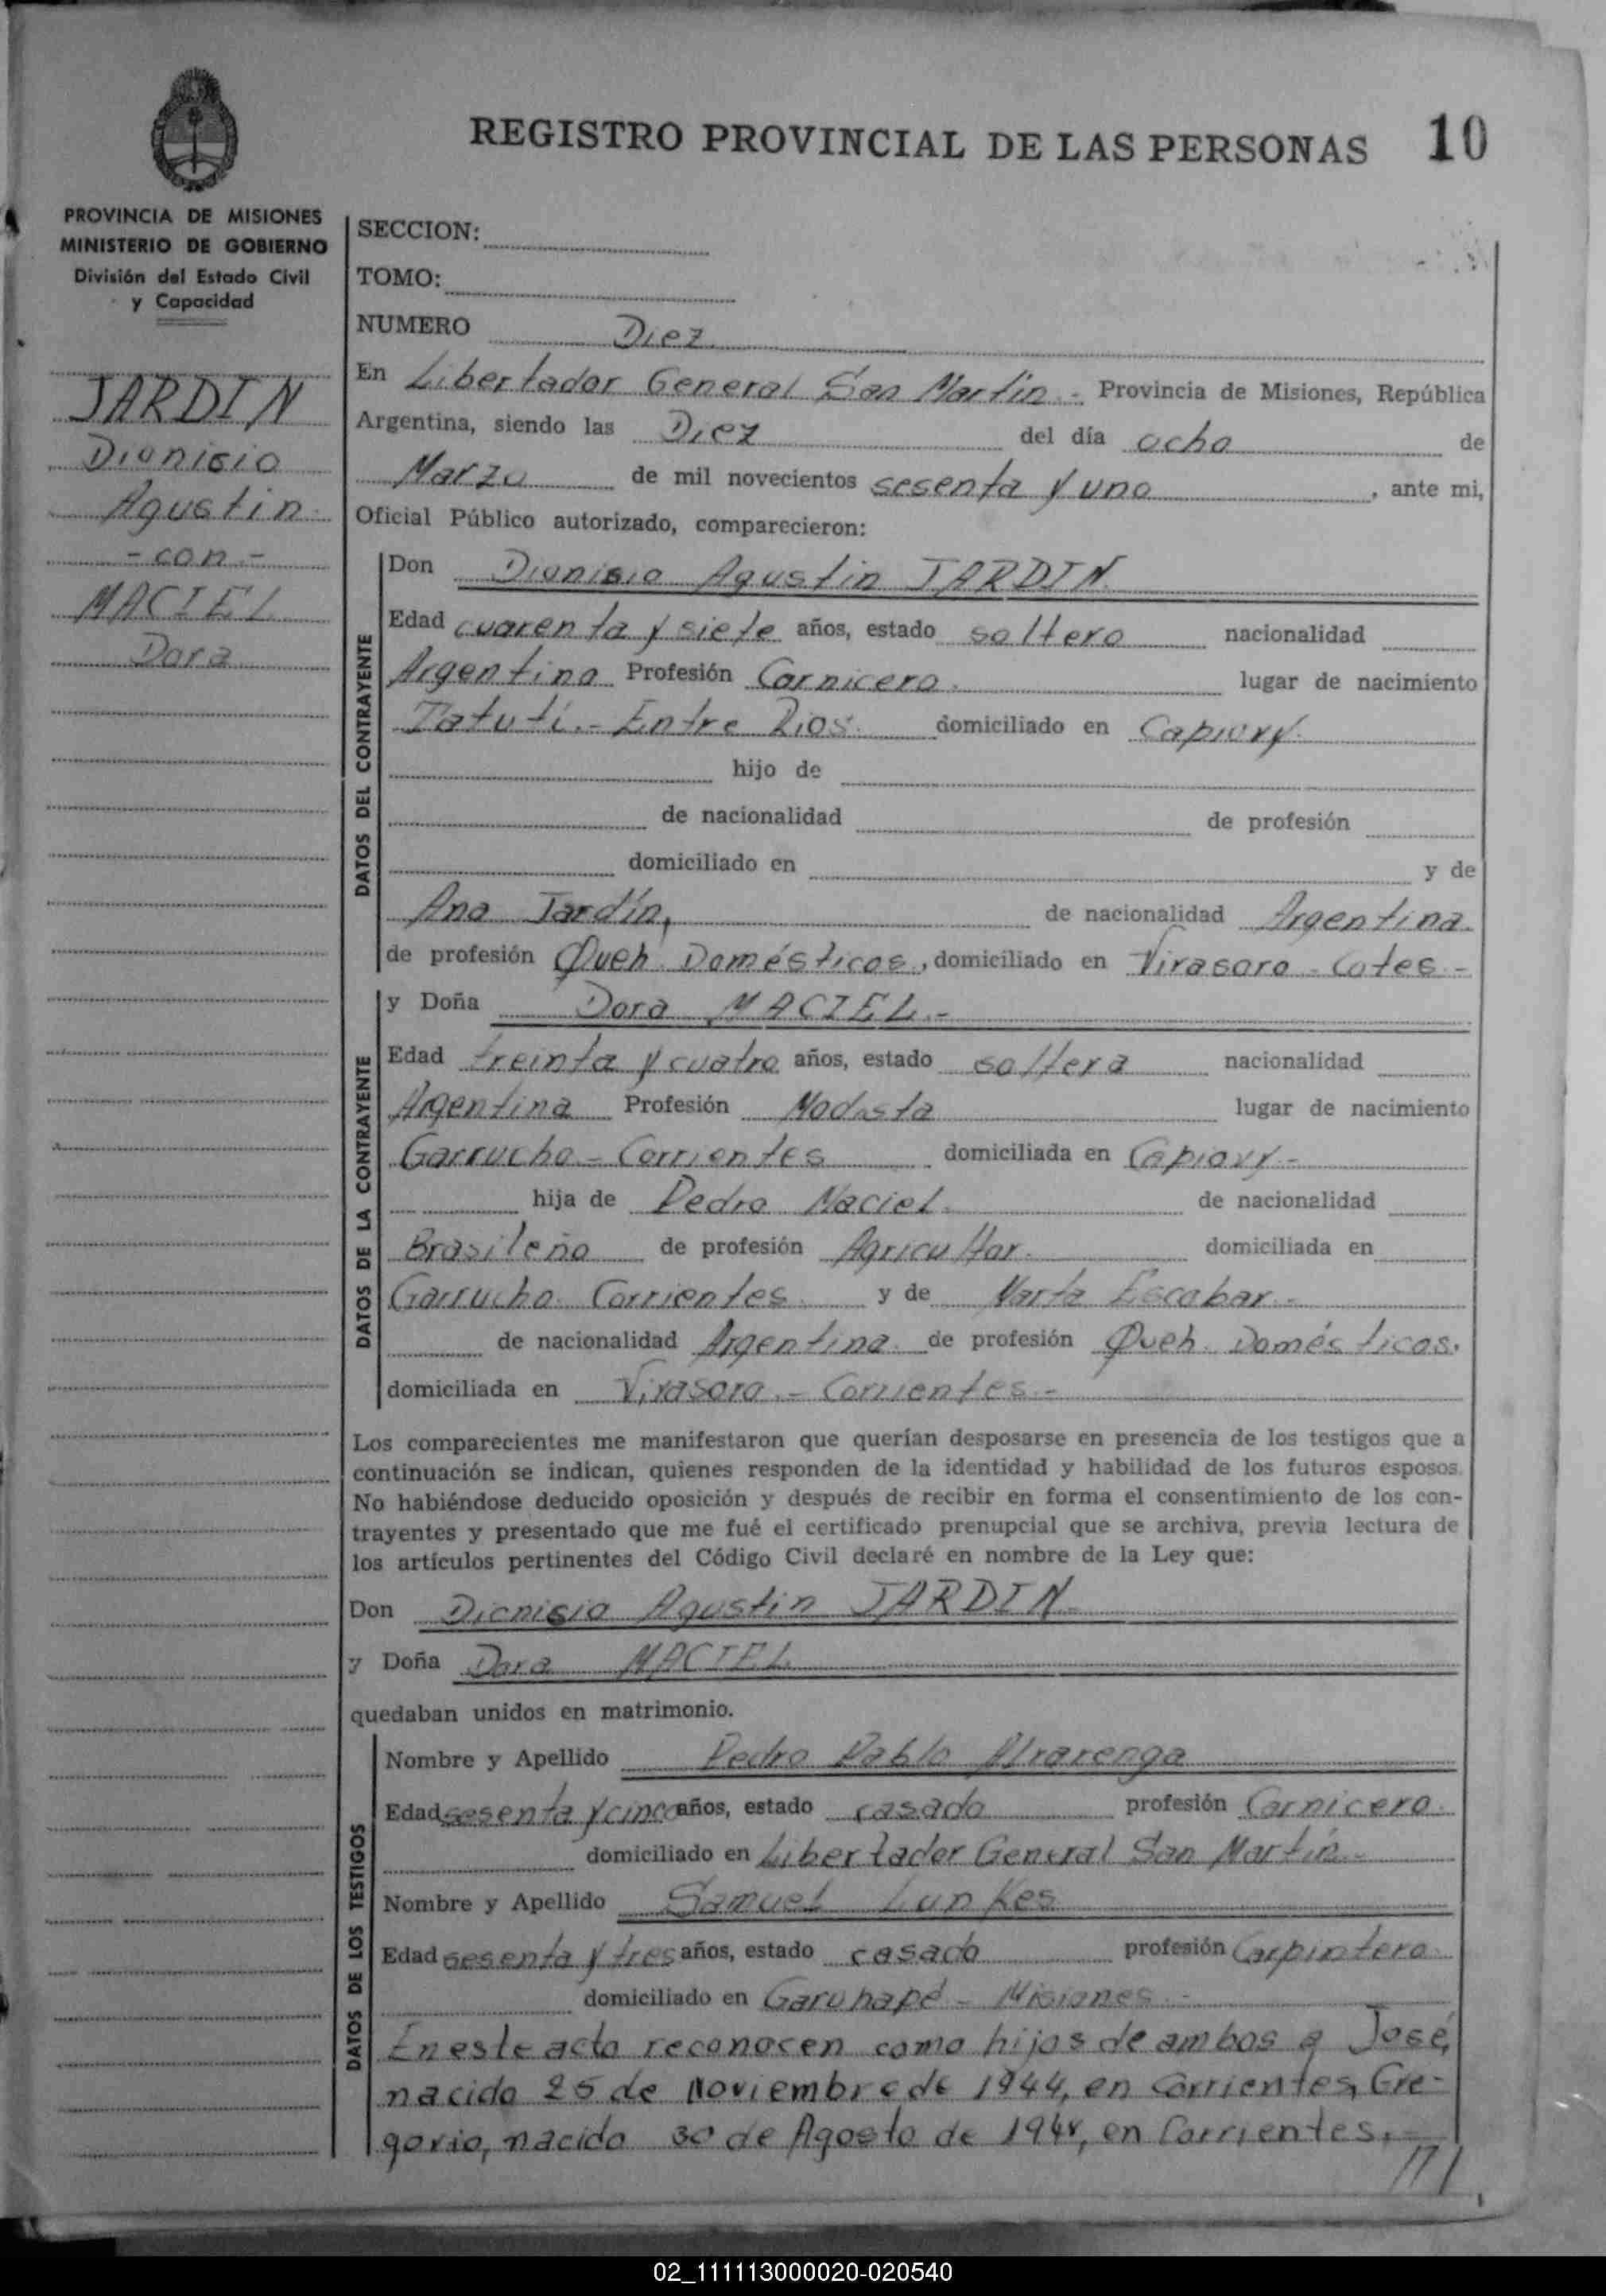 REGISTRO PROVINCIAL DE LAS PERSONAS 10
PROVINCIA DE MISIONES
MINISTERIO DE GOBIERNO
División del Estado Civil
y Capacidad
JARDIN
Dionisio
Agustin
- con -
MACIEL
Dora
SECCION:
TOMO:
NUMERO Diez
En Libertador General San Martin - Provincia de Misiones, República
Argentina, siendo las Diez del día ocho de
Marzo de mil novecientos sesenta y uno, ante mi,
Oficial Público autorizado, comparecieron:
DATOS DEL CONTRAYENTE
Don Dionisio Agustin JARDIN
Edad cuarenta y siete años, estado soltero nacionalidad
Argentino Profesión Carnicero. lugar de nacimiento
Tatutí.- Entre Rios. domiciliado en Capiovy.
hijo de
de nacionalidad de profesión
domiciliado en y de
Ana Jardín, de nacionalidad Argentina.
de profesión Queh. Domésticos, domiciliado en Virasoro - Cotes -
DATOS DE LA CONTRAYENTE
y Doña Dora MACIEL.-
Edad treinta y cuatro años, estado soltera nacionalidad
Argentina Profesión Modista lugar de nacimiento
Garrucho - Corrientes domiciliada en Capiovy -
hija de Pedro Maciel. de nacionalidad
Brasileño de profesión Agricultor. domiciliada en
Garrucho. Corrientes. y de Marta Escobar -
de nacionalidad Argentina. de profesión Queh. Domésticos.
domiciliada en Virasoro.- Corrientes.-
Los comparecientes me manifestaron que querían desposarse en presencia de los testigos que a
continuación se indican, quienes responden de la identidad y habilidad de los futuros esposos.
No habiéndose deducido oposición y después de recibir en forma el consentimiento de los con-
trayentes y presentado que me fué el certificado prenupcial que se archiva, previa lectura de
los artículos pertinentes del Código Civil declaré en nombre de la Ley que:
Don Dionisio Agustin JARDIN
y Doña Dora MACIEL
quedaban unidos en matrimonio.
DATOS DE LOS TESTIGOS
Nombre y Apellido Pedro Pablo Alvarenga
Edad sesenta y cinco años, estado casado profesión Carnicero.
domiciliado en Libertador General San Martín -
Nombre y Apellido Samuel Lunkes
Edad sesenta y tres años, estado casado profesión Carpintero.
domiciliado en Garuhapé - Misiones -
En este acto reconocen como hijos de ambos a José,
nacido 25 de Noviembre de 1944, en Corrientes, Gre-
gorio, nacido 30 de Agosto de en Corrientes,
///
02_111113000020-020540